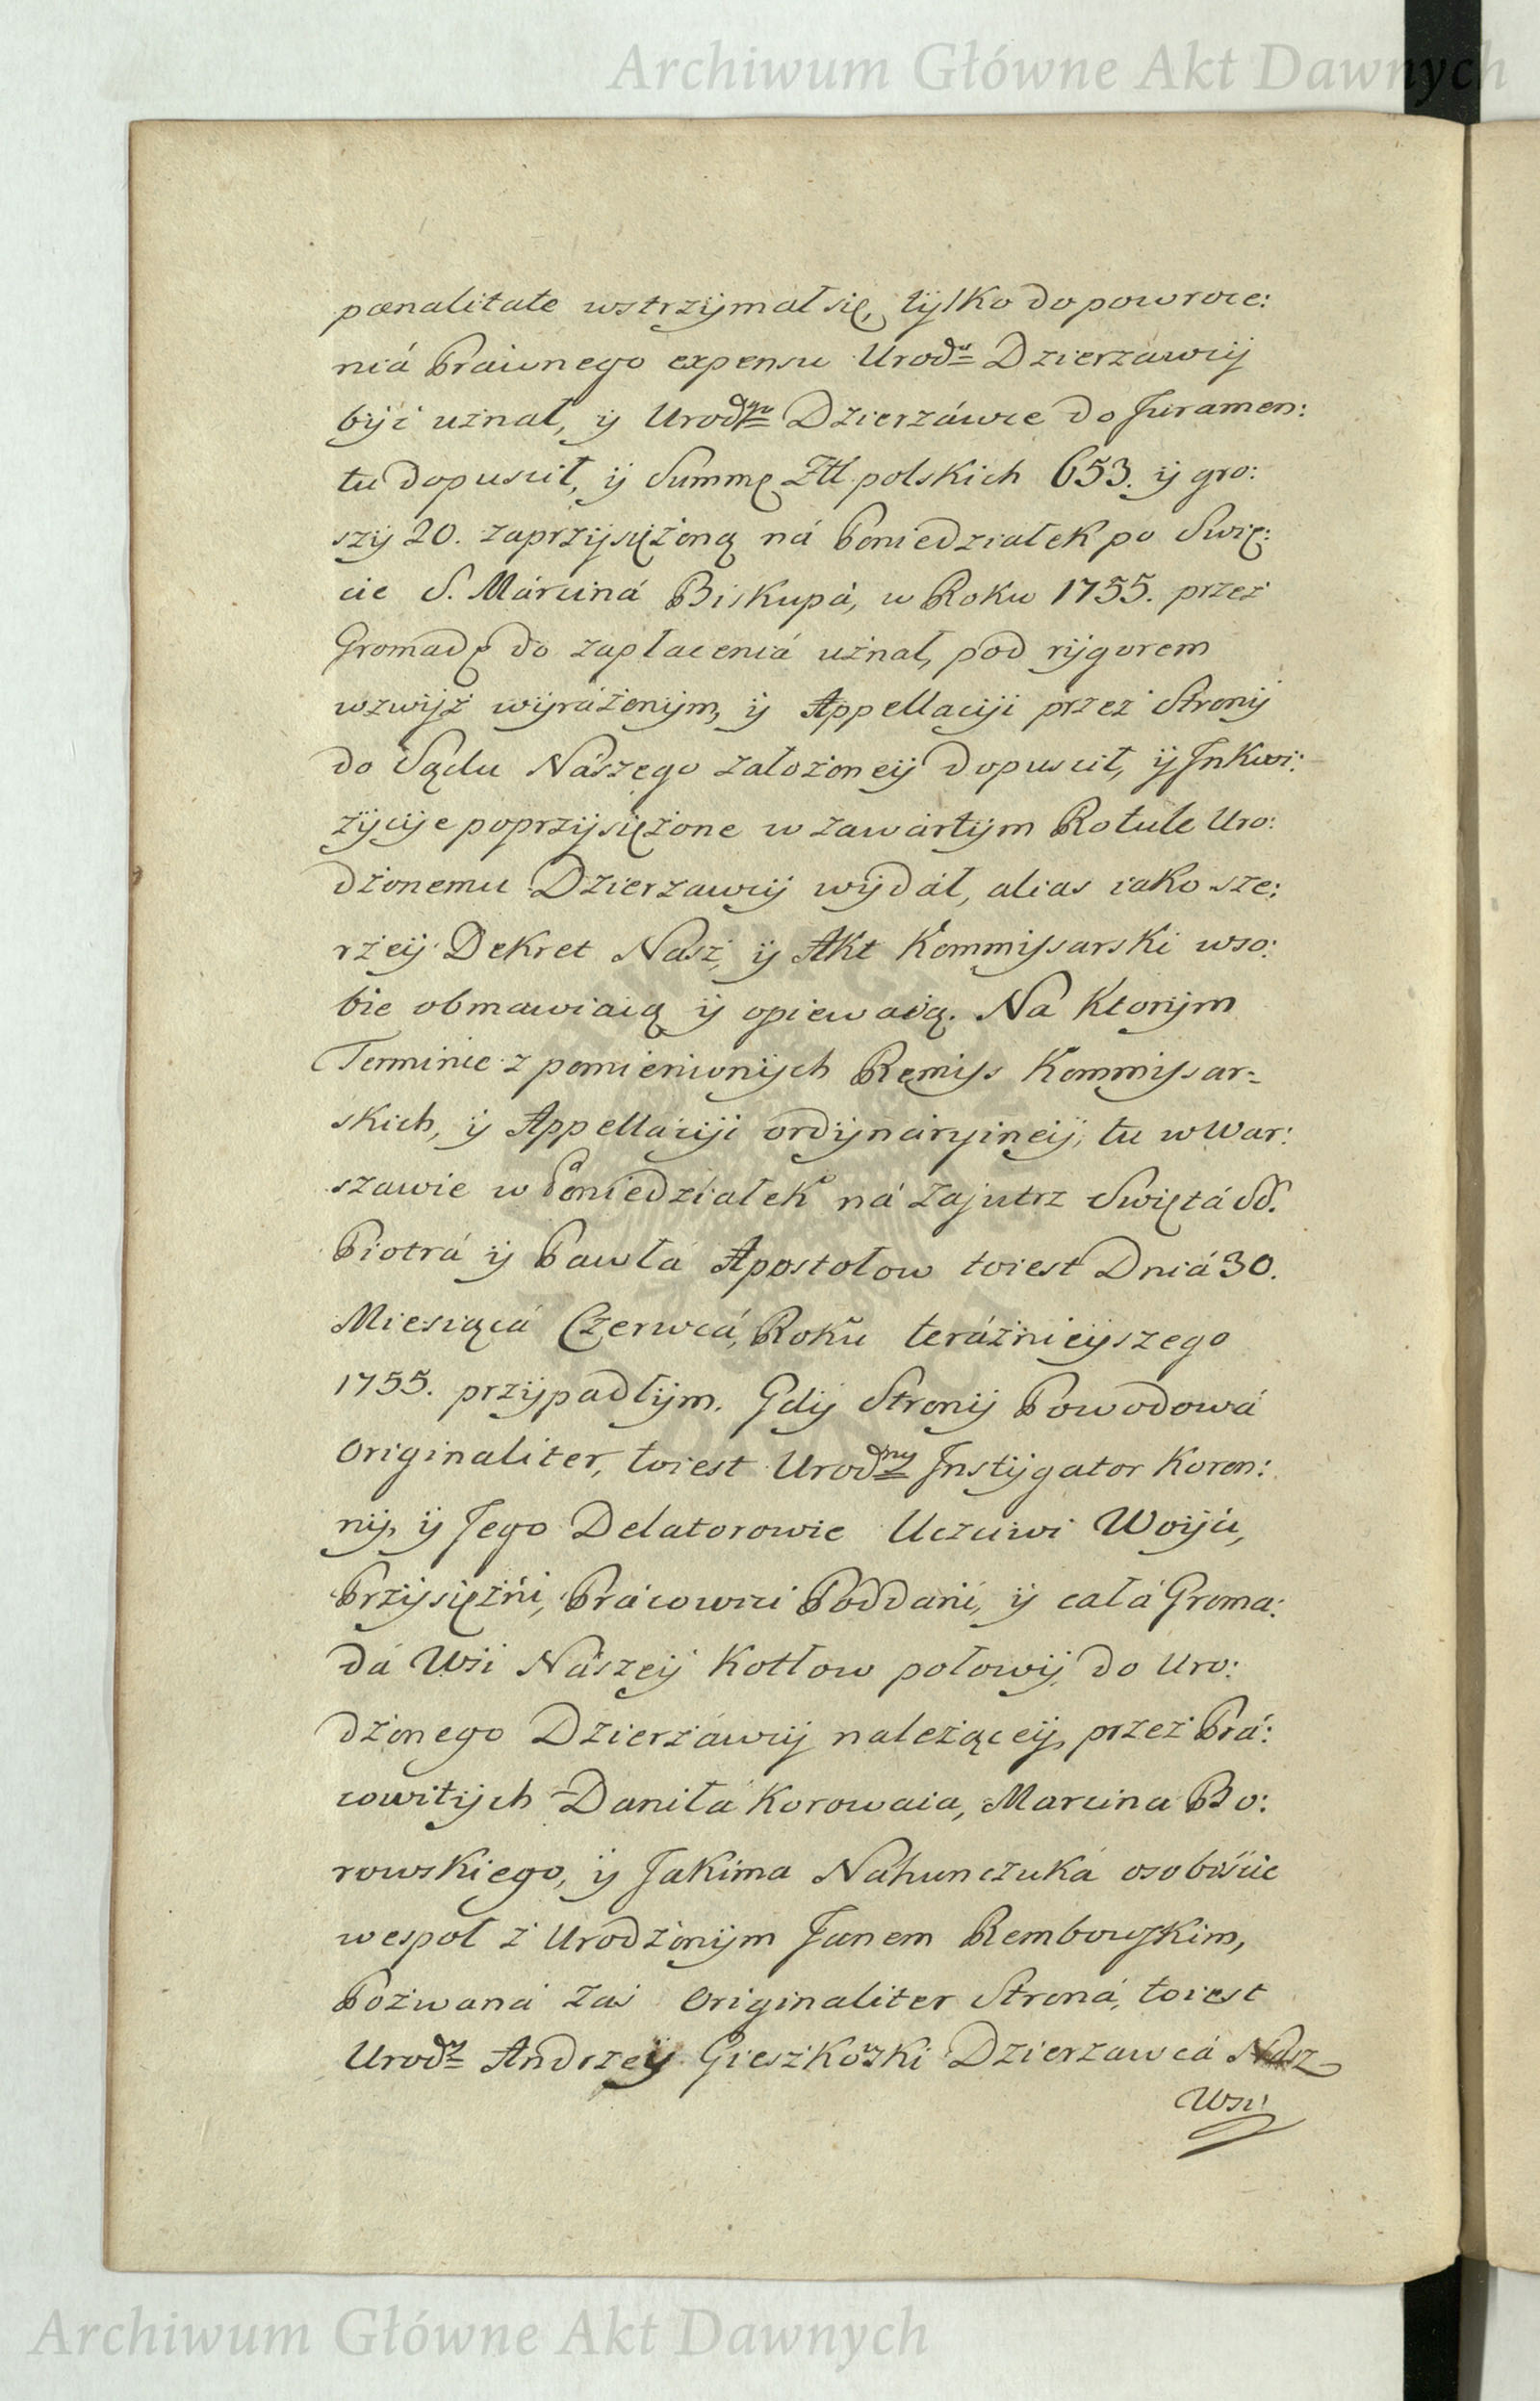 Archiwum Główne Akt Dawnych
pœnalitate wstrzÿmał się, tÿlko do powroce:
niá Prawnego expensu Urod<sup>u</sup> Dzierzáwcÿ
bÿć uznał, ÿ Urod<sup>mu</sup> Dzierzáwce do Juramen:
tu dopuscił, ÿ Summę Ztł. polskich 653. ÿ gro:
szÿ 20. zaprzÿsiężoną ná Poniedziałek po Swię:
cie S. Márciná Biskupá, w Roku 1755. przez
Gromadę do zapłaceniá uznał, pod rÿgorem
wzwÿż wÿráżonÿm, ÿ Appellacÿi przez Stronÿ
do Sądu Nászego założoneÿ dopuscił, ÿ Inkwi:
zÿcÿe poprzÿsiężone w záwártÿm Rotule Uro:
dzonemu Dzierzawcÿ wÿdáł, alias iako sze:
rzeÿ Dekret Nasz, ÿ Akt Kommissarski w so:
bie obmawiaią ÿ opiewaią. Na Ktorÿm
Terminie z pomienionÿch Remiss Kommissar=
skich, ÿ Appellácÿi ordÿnarÿineÿ, tu w War:
szawie w Poniedziałek ná Zajutrz Swiętá SS.
Piotrá ÿ Pawłá Apostołow toiest Dniá 30.
Miesiącá Czerwcá, Roku teráźnieÿszego
1755. przÿpadłÿm. Gdÿ Stronÿ Powodowá
Originaliter, toiest Urod<sup>nÿ</sup> Instÿgator Koron:
nÿ, ÿ Jego Delatorowie Uczciwi Woÿci,
Przÿsiężni, Prácowici Poddáni, ÿ cáłá Groma:
dá Wsi Nászeÿ Kotłow połowÿ, do Uro:
dzonego Dzierzáwcÿ należąceÿ, przez Prá:
cowitÿch Daniłá Korowaia, Marcina Bo:
rowskiego, ÿ Jakima Náhunczuká osobiście
wespoł z Urodzonÿm Janem Rembowskim,
Pozwaná zas Originaliter Stroná, toiest
Urod<sup>z</sup> Andrzeÿ Gieszkowski Dzierzawcá Nasz
Wsi
Archiwum Główne Akt Dawnych